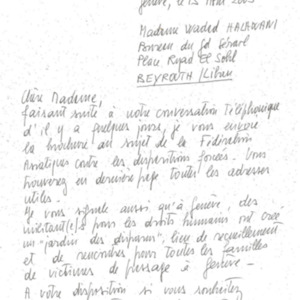 Genève, le 15 mai 2003
Madame Waded HALAWANI
Bureau du
Place Ryad El Solh
BEYROUTH /Liban
Chère Madame,
faisant suite à notre conversation téléphonique
d'il y a quelques jours, je vous envoie
la brochure au sujet de la Fédération
Asiatique contre les dispositions forcées. Vous
trouverez en dernière page toutes les adresses
utiles.
Je vous signale aussi qu'à Genève, des
militant(e)s pour les droits humains ont créé
un "jardin des disparus", lieu de recueillement
et de rencontres pour toutes les familles
de victimes de passage à Genève.
A votre disposition si vous souhaitez